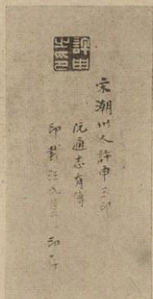 許申之印
宋潮州人許申之印
阮通志有傳
印載